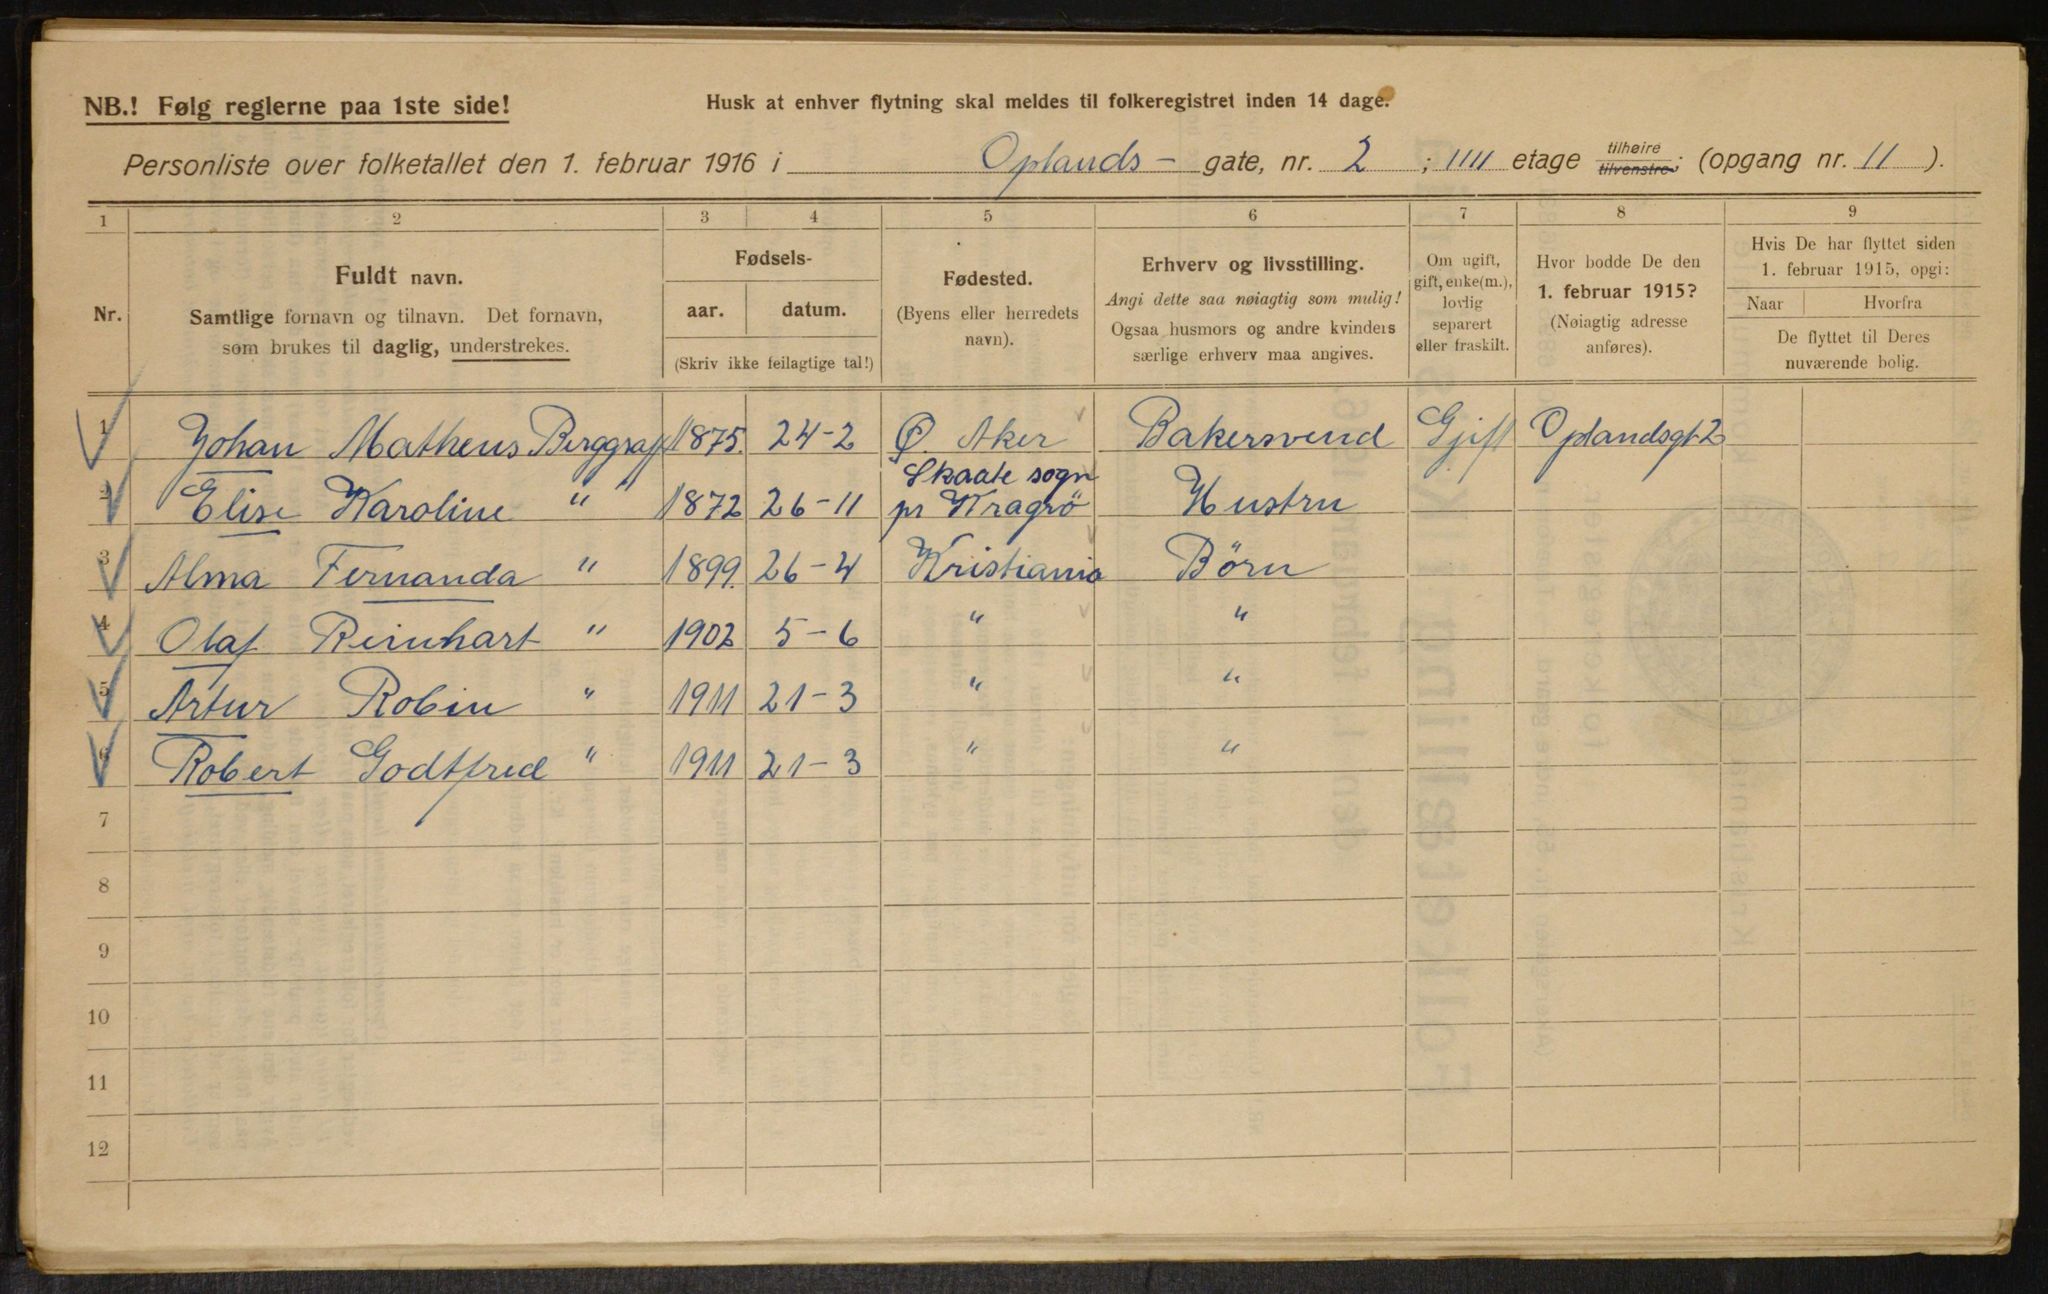 NB.! Følg reglerne paa 1ste side!
Husk at enhver flytning skal meldes til folkeregistret inden 14 dage.
Personliste over folketallet den 1. februar 1916 i Oplands- gate, nr. 2 ; IIII etage tilhøire tilvenstre; (opgang nr. 11 ).
1 2 3 4 5 6 7 8 9
Nr.
Fuldt navn.
Samtlige fornavn og tilnavn. Det fornavn,
som brukes til daglig, understrekes.
Fødsels-
aar. datum.
(Skriv ikke feilagtige tal!)
Fødested.
(Byens eller herredets
navn).
Erhverv og livsstilling.
Angi dette saa nøiagtig som mulig!
Ogsaa husmors og andre kvinders
særlige erhverv maa angives.
Om ugift,
gift, enke(m.),
lovlig
separert
eller fraskilt.
Hvor bodde De den
1. februar 1915?
(Nøiagtig adresse
anføres).
Hvis De har flyttet siden
1. februar 1915, opgi:
Naar Hvorfra
De flyttet til Deres
nuværende bolig.
1 Johan Matheus Berggraf 1875. 24-2 Ø. Aker Bakersvend Gjift Oplandsgt 2
Skaate sogn
2 Elise Karoline " 1872 26-11 pr Kragrö Hustru
3 Alma Fernanda " 1899. 26-4 Kristiania Börn
4 Olaf Reinhart " 1902 5-6 " "
5 Artur Robin " 1911 21-3 " "
6 Robert Godtfred " 1911 21-3 " "
7
8
9
10
11
12